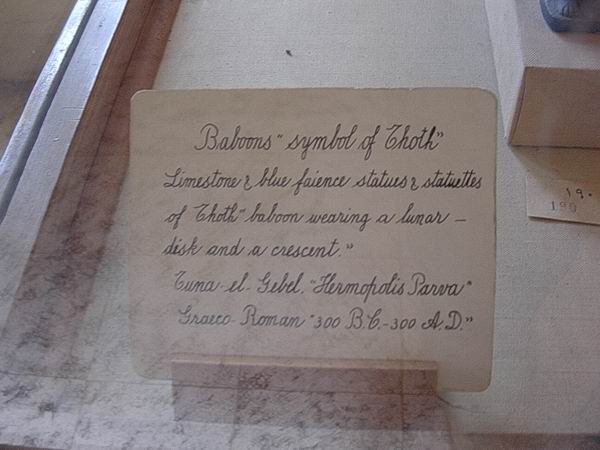 Baboons "symbol of Thoth"
Limestone & blue faience statues & statuettes
of Thoth" baboon wearing a lunar –
disk and a crescent."
Tuna-el-Gebel. "Hermopolis Parva"
Graeco-Roman "300 B.C.-300 A.D."
١٩٠
190